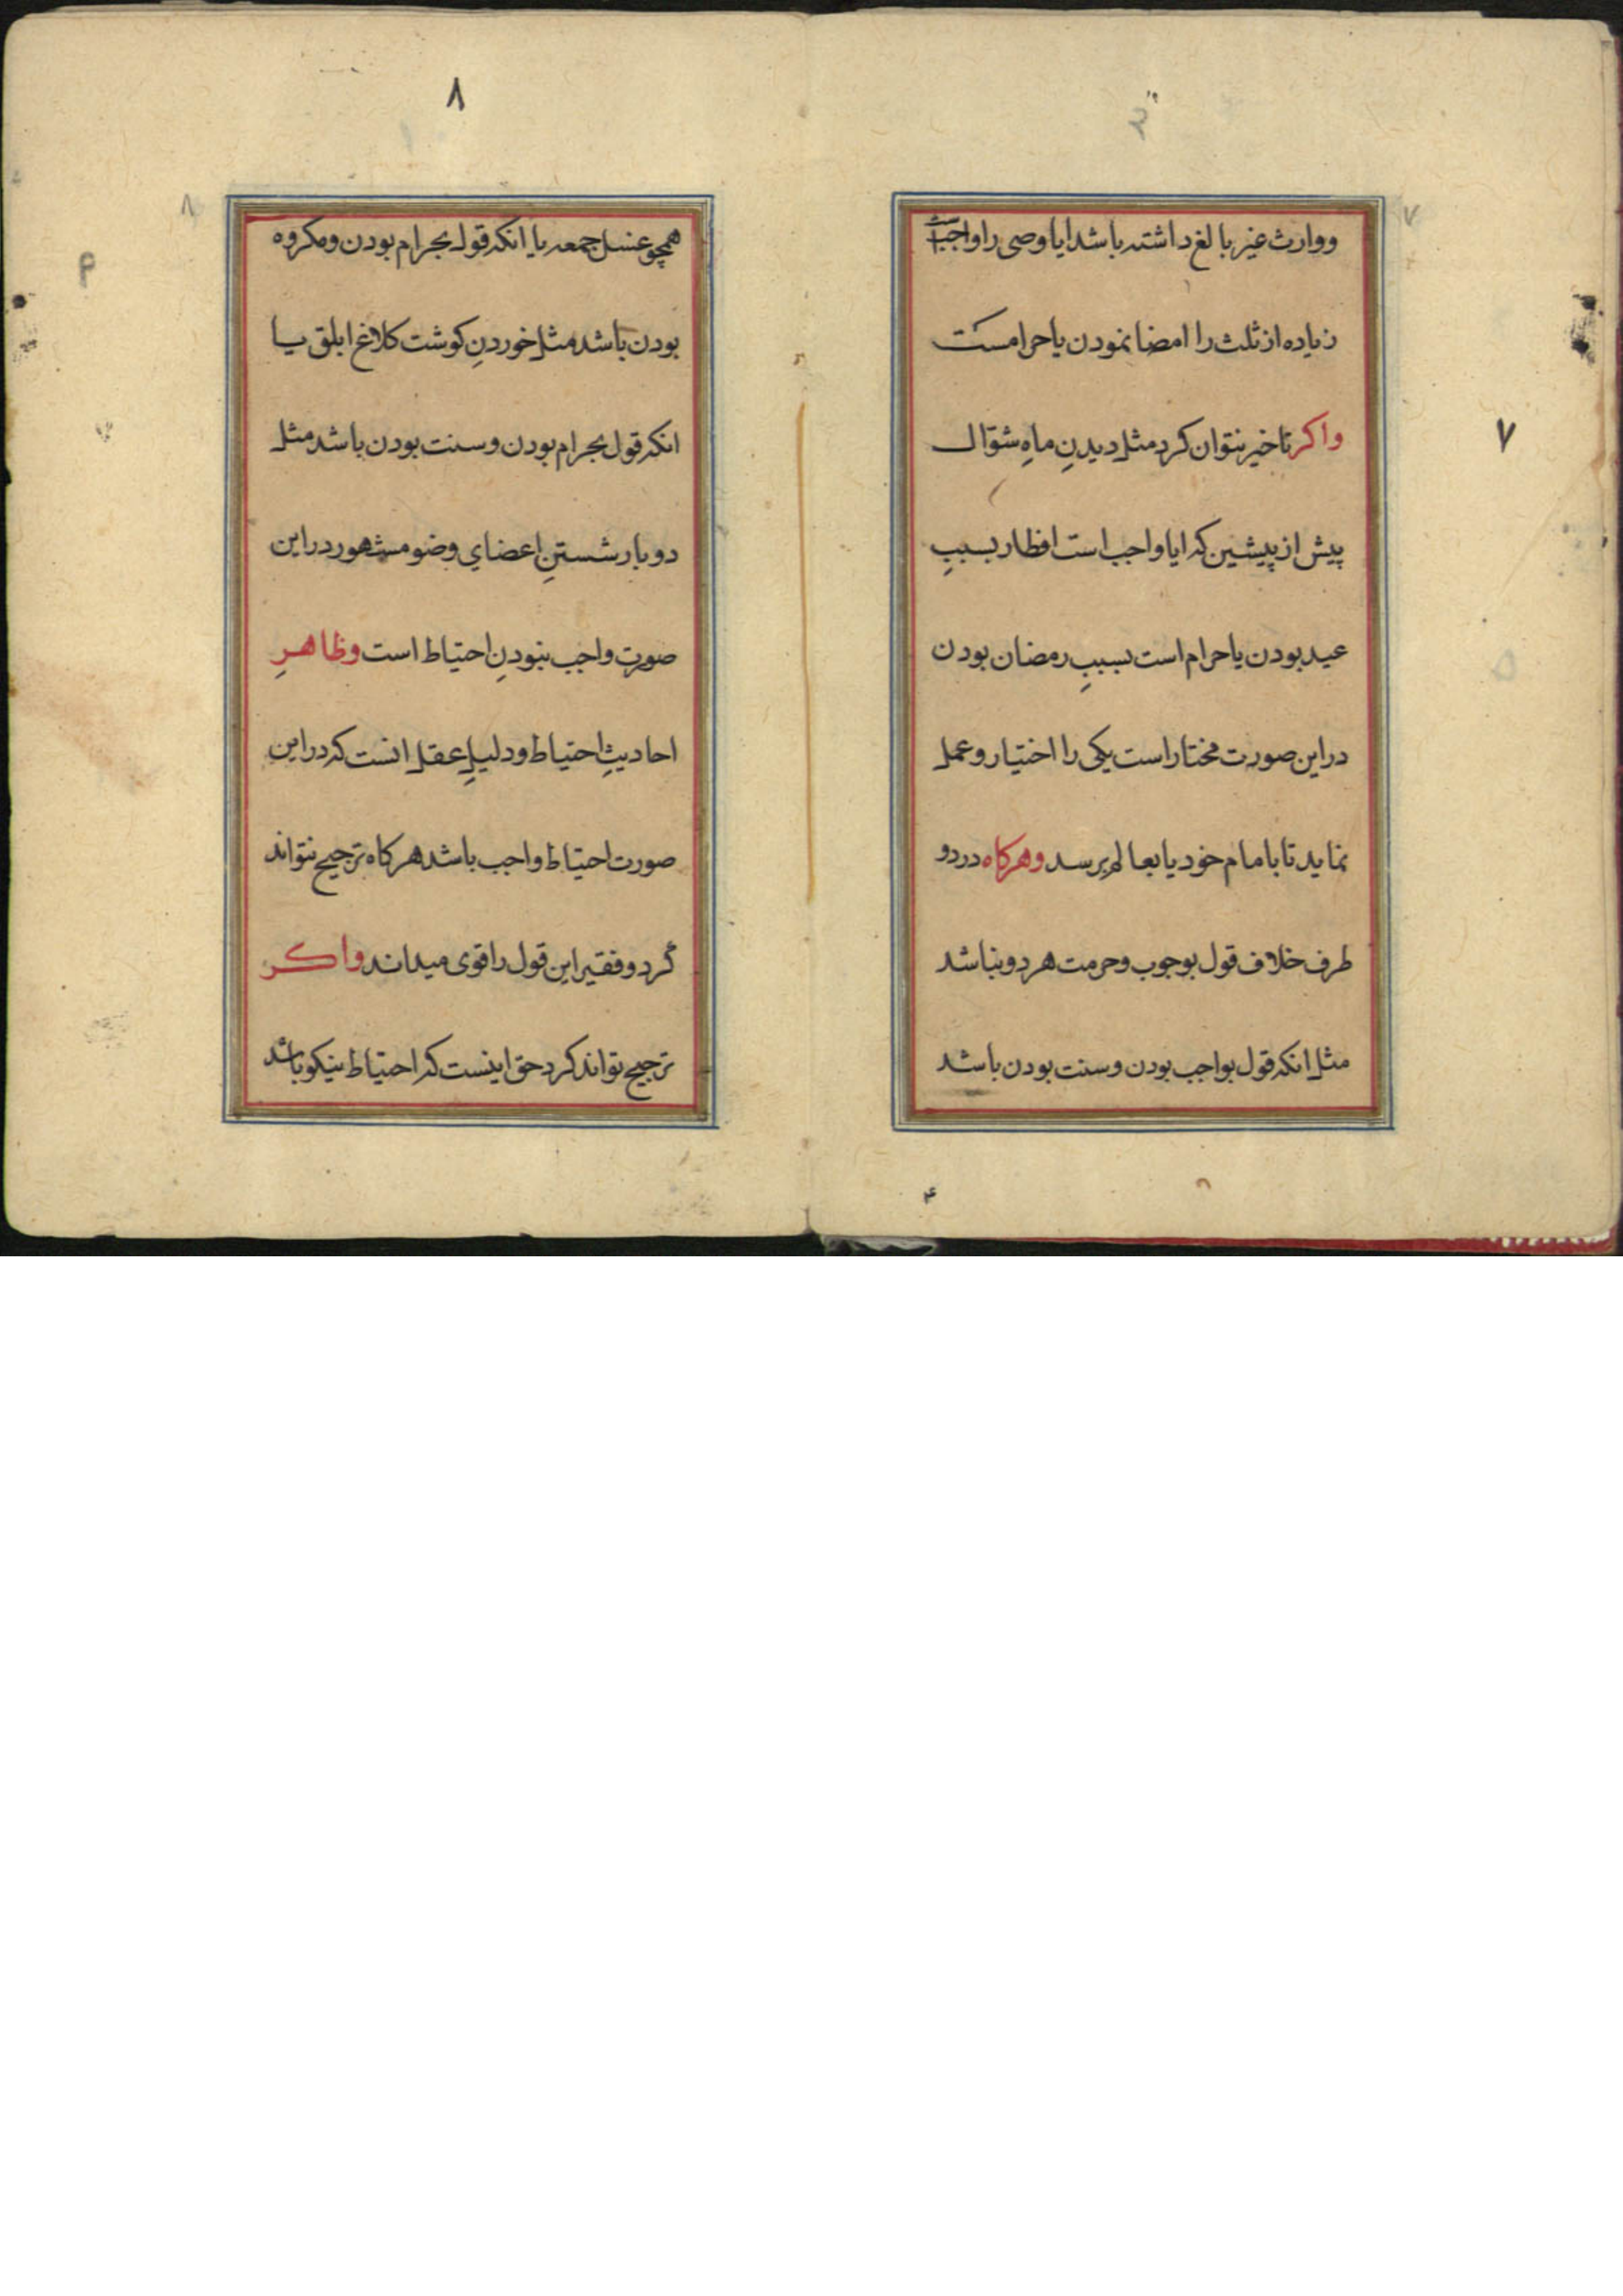 ۷
ووارث غیر بالغ داشته باشد ایا وصی را واجبست
زیاده از ثلث را امضا نمودن یا حرامست
واکر تاخیر نتوان کرد مثل دیدنِ ماهِ شوّال
پیش از پیشین که ایا واجب است افطار بسببِ
عید بودن یا حرام است بسببِ رمضان بودن
در این صورت مختار است یکی را اختیار و عمل
نماید تا بامام خود یا بعالم برسد وهرکاه در دو
طرف خلاف قول بوجوب وحرمت هر دو نباشد
مثل انکه قول بواجب بودن وسنت بودن باشد
۸
همچو غسل جمعه یا انکه قول بحرام بودن ومکروه
بودن باشد مثل خوردنِ کوشت کلاغ ابلق یا
انکه قول بحرام بودن وسنت بودن باشد مثل
دو بار شستنِ اعضای وضو مشهور در این
صورت واجب نبودنِ احتیاط است وظاهرِ
احادیثِ احتیاط ودلیلِ عقل انست که در این
صورت احتیاط واجب باشد هرکاه ترجیح نتواند
کرد وفقیر این قول را قوی میداند واکر
ترجیح تواند کرد حق اینست که احتیاط نیکو باشد